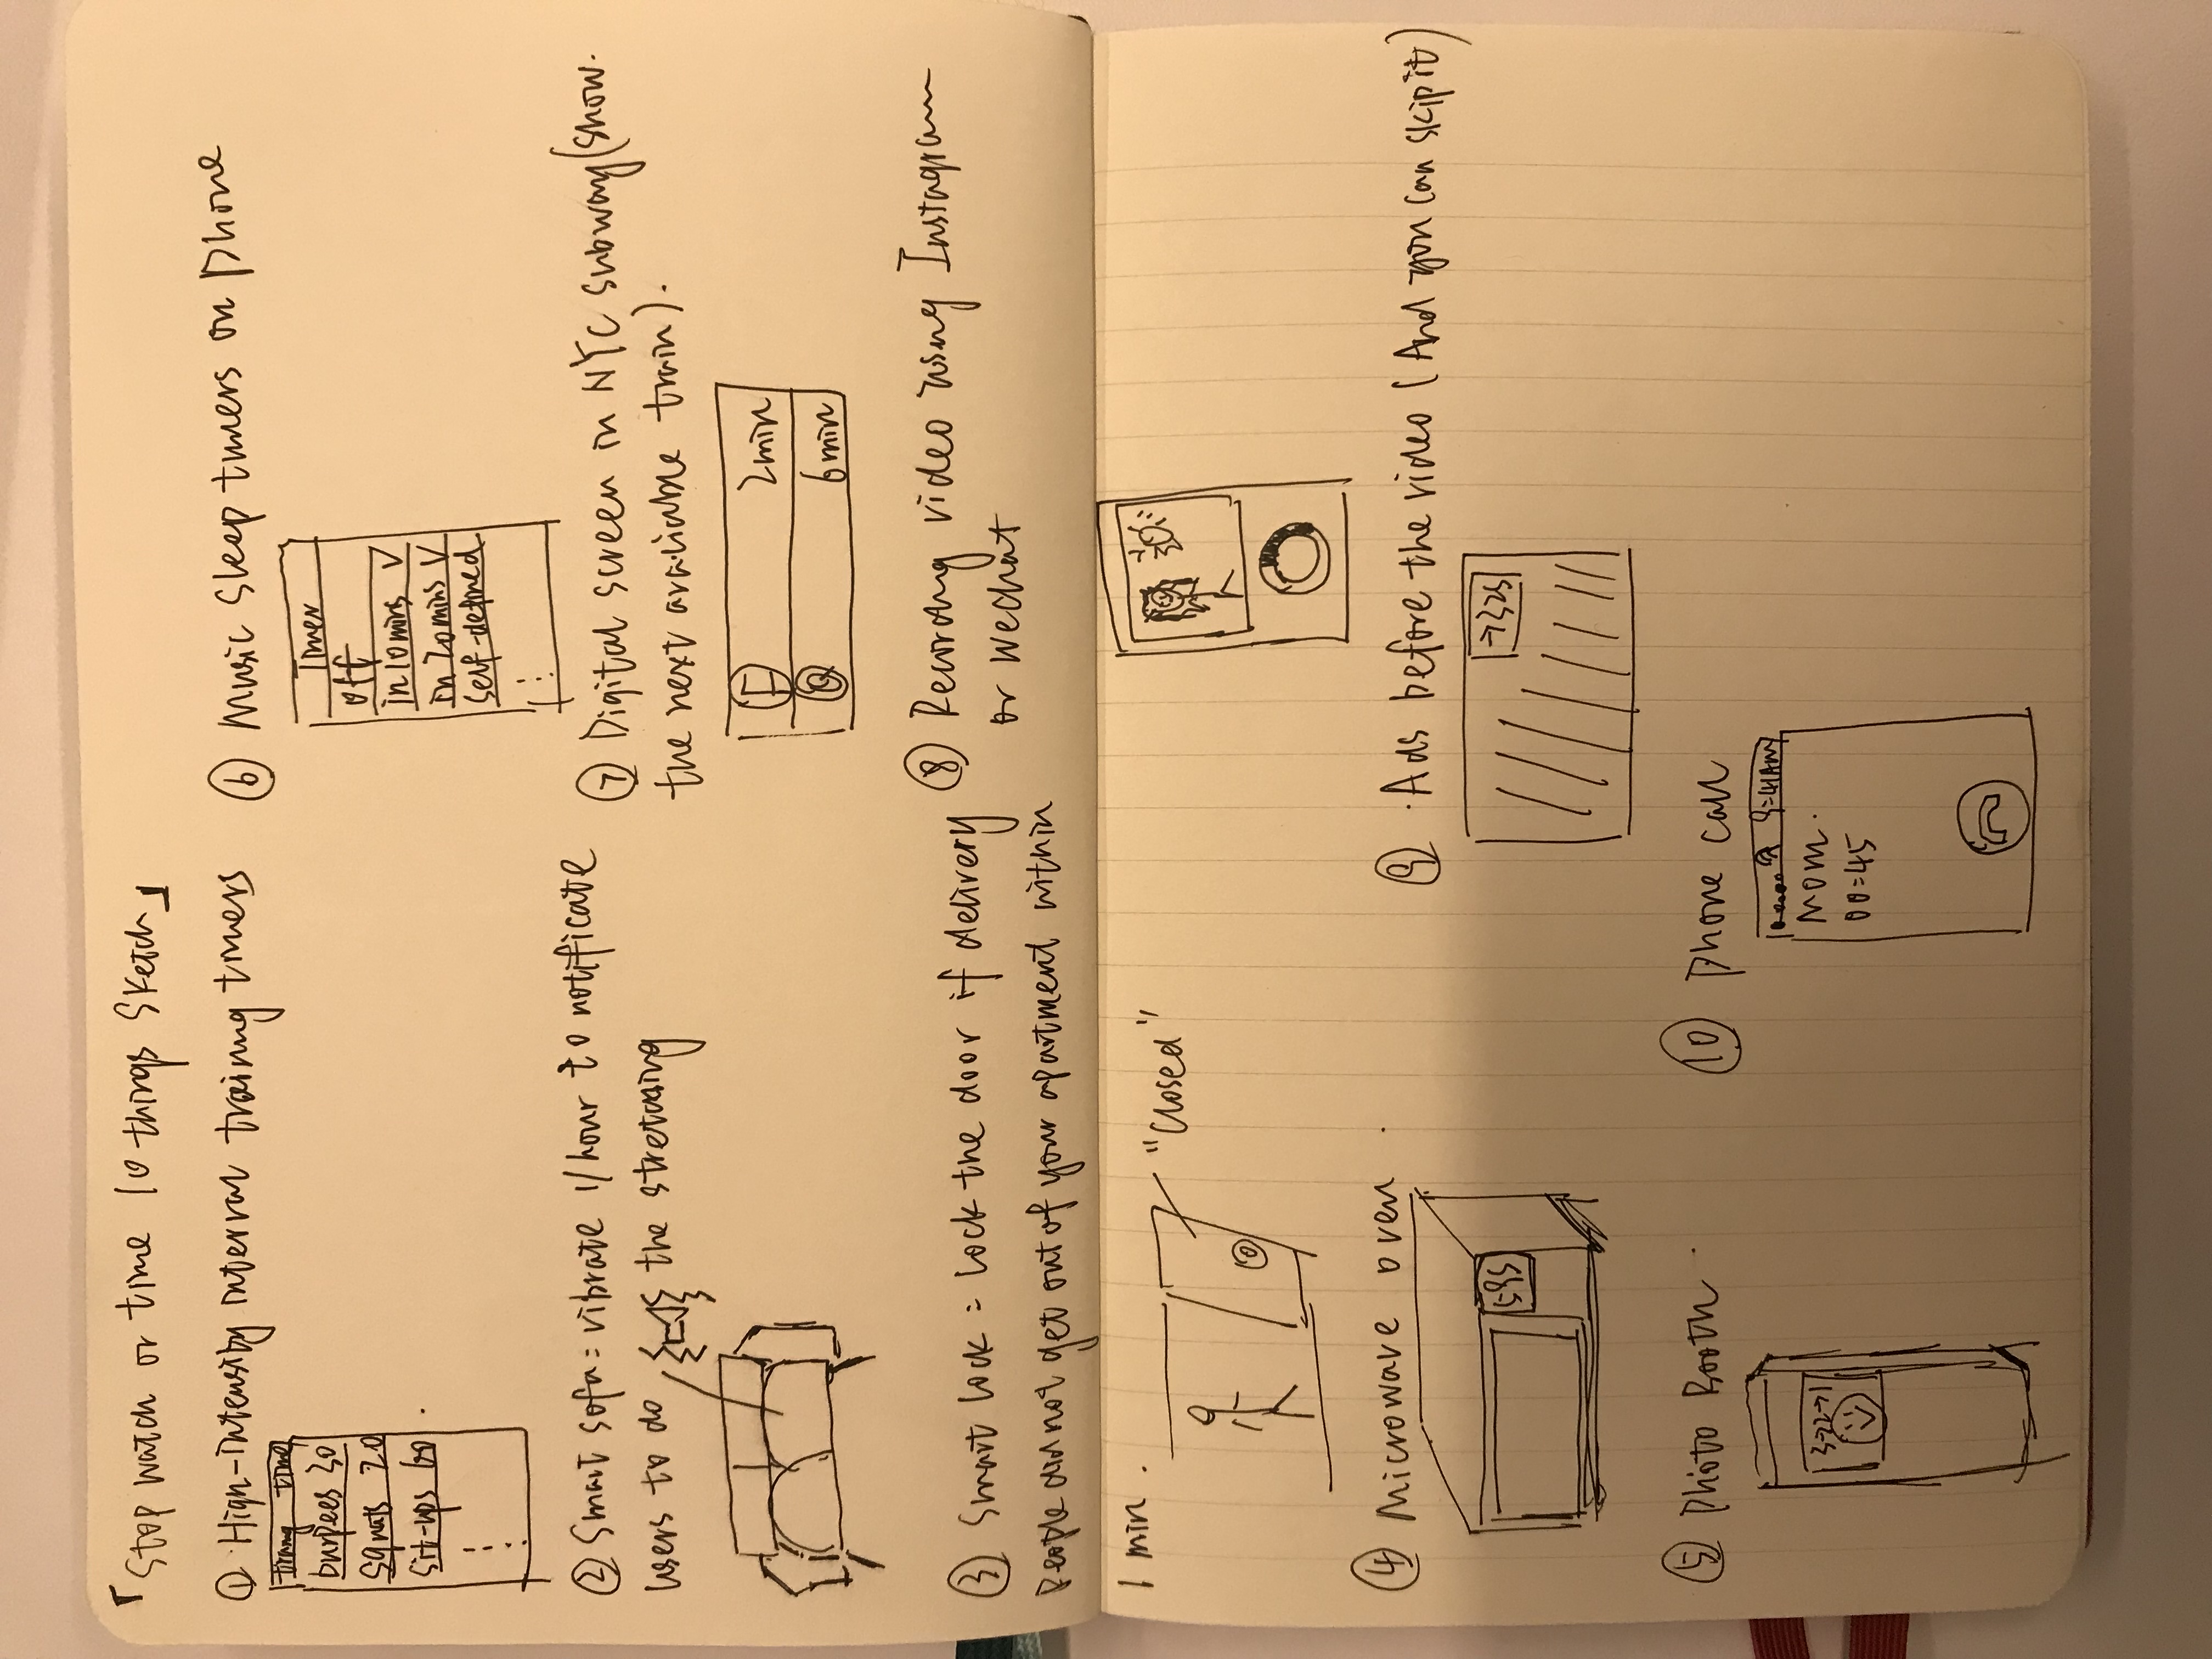 「Stop watch or time 10 things Sketch」
① High-intensity interval training timers
traing time
burpees 30
squats 20
sit-ups 60
② Smart sofa = vibrate 1/hour to notificate
users to do the stretching
③ Smart lock = lock the door if delivery
people did not get out of your apartment within
1 min.
"Closed"
④ Microwave oven
595
⑤ Photo Booth
3→2→1
⑥ Music Sleep timers on phone
Timer
off
in 10 mins ✓
in 20 mins ✓
self-defined
⑦ Digital screen in NYC subway (show
the next avaliable train).
F 2min
Q 6min
⑧ Recording video using Instagram
or Wechat
⑨ Ads before the video (And you can skip it)
→32s
⑩ Phone call
9:41AM
Mom
00:45